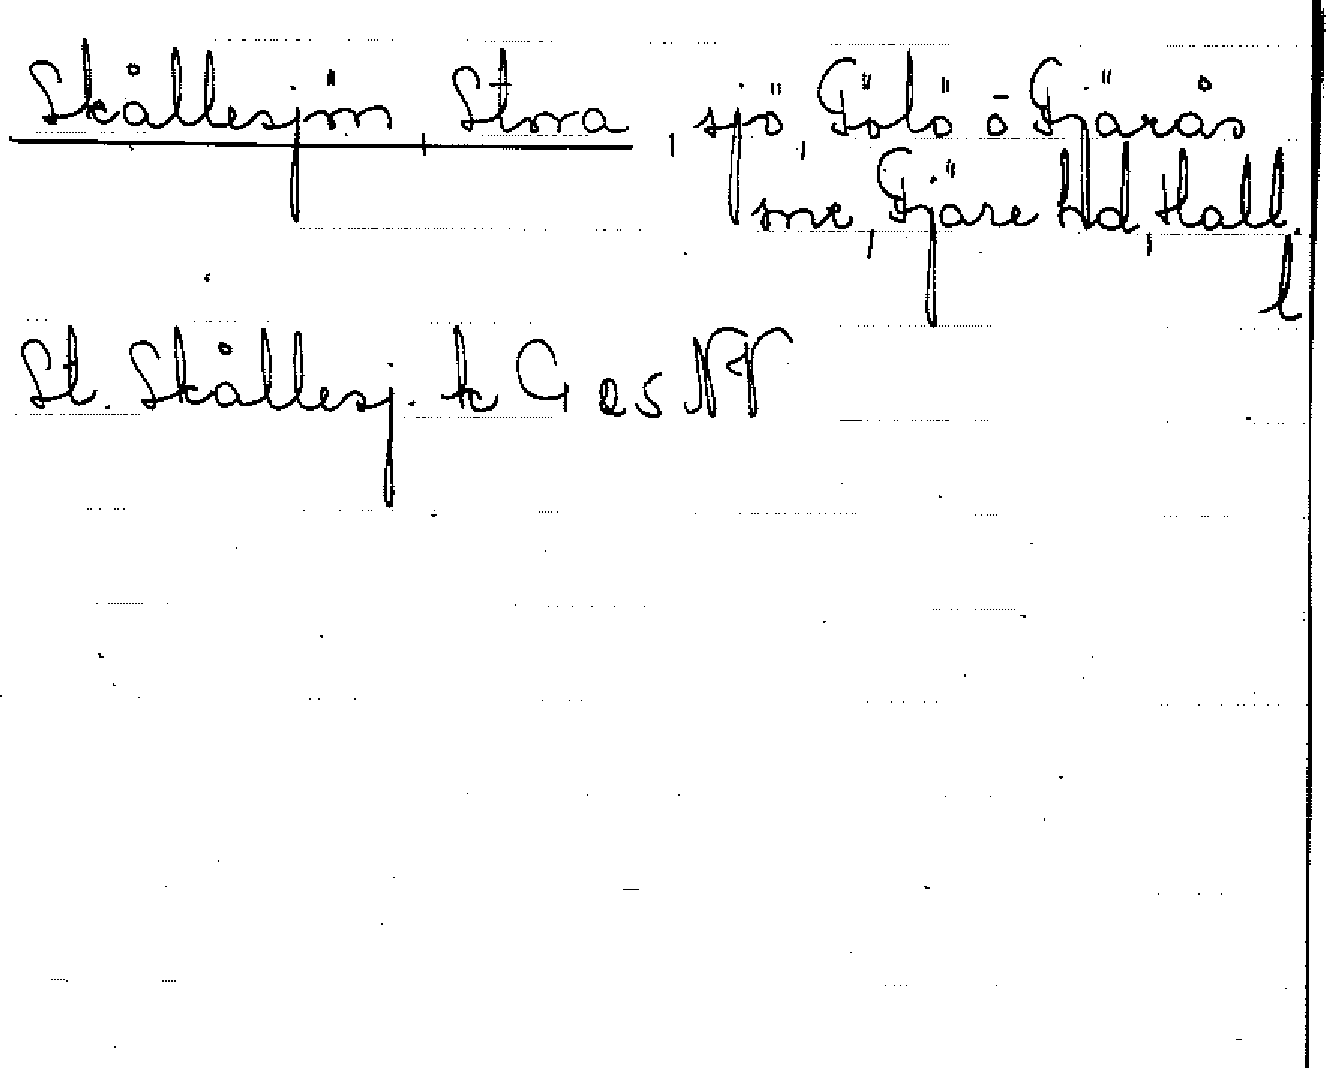 Skållesjön, Stora, sjö, Gölö o Fjärås
sne, Fjäre hd, Hall.
l
St. Skållesj. k G es NV